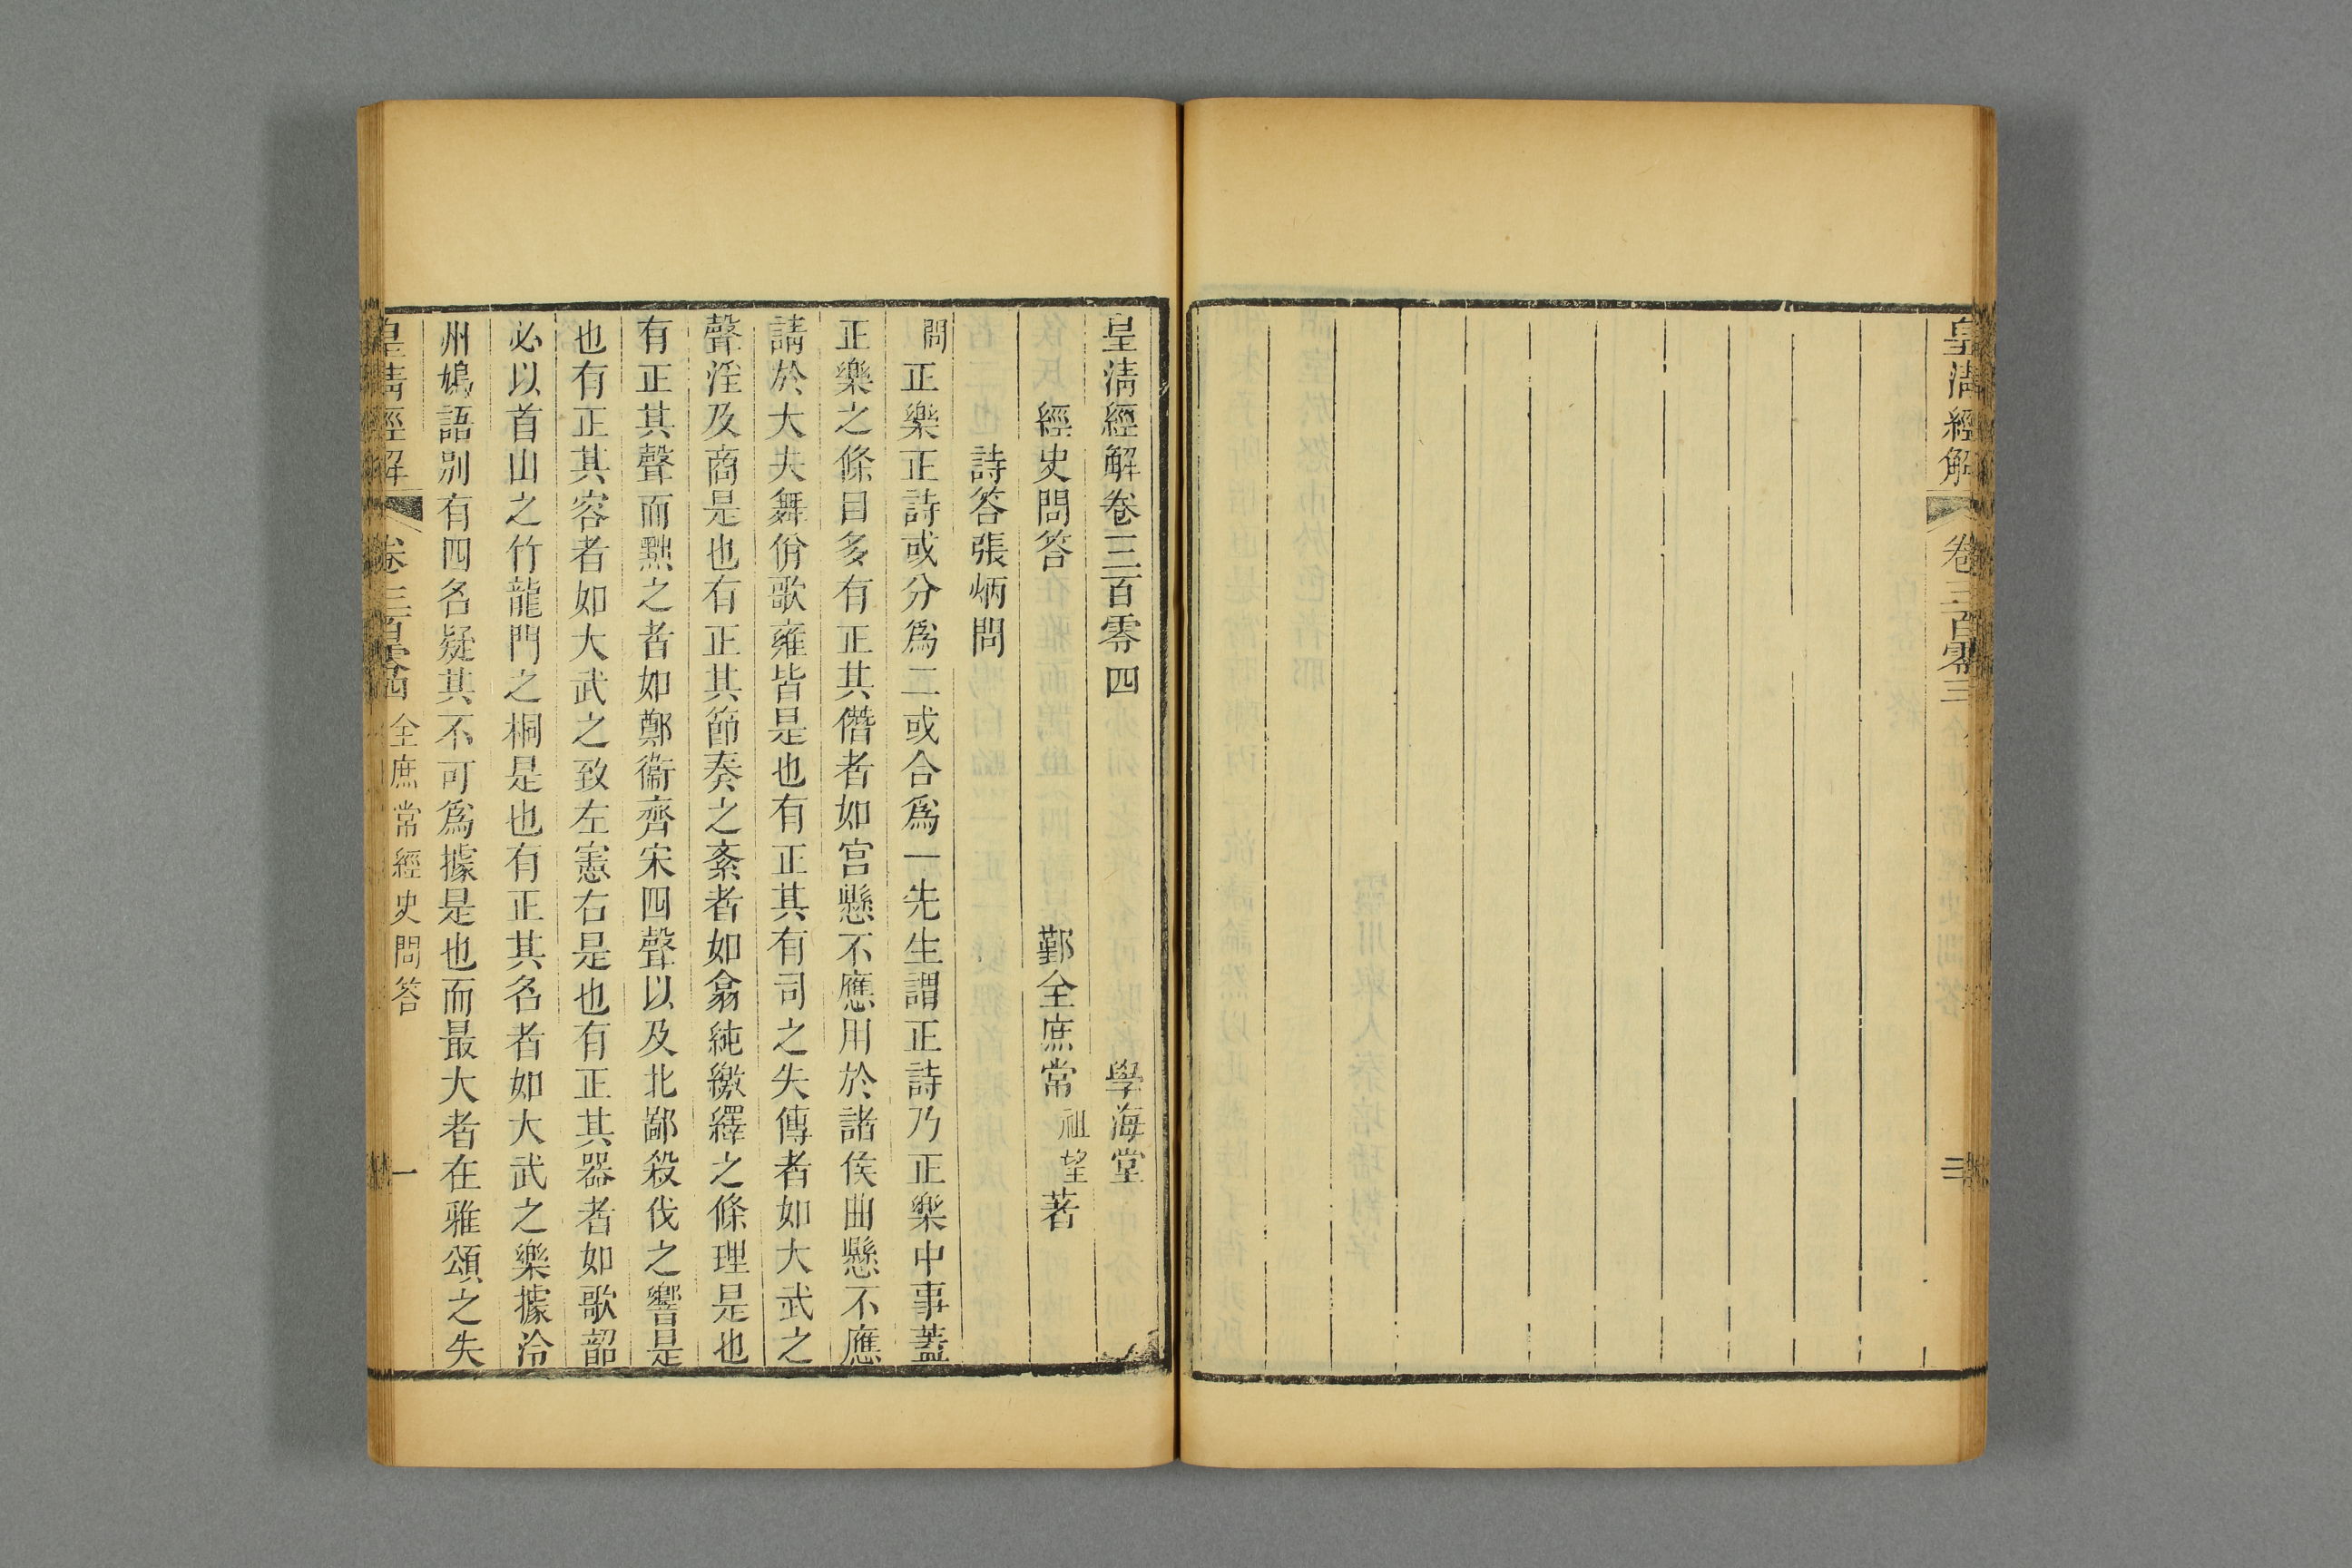 皇清經解 卷三百零三
皇清經解卷三百零四 學海堂
經史問答 鄞全庶常祖望著
詩答張炳問
問正樂正詩或分爲二或合爲一先生謂正詩乃正樂中事蓋
正樂之條目多有正其僭者如宫懸不應用於諸侯曲懸不應
請於大夫舞佾歌雍皆是也有正其有司之失傳者如大武之
聲淫及商是也有正其節奏之紊者如翕純繳繹之條理是也
有正其聲而黜之者如鄭衞齊宋四聲以及北鄙殺伐之響是
也有正其容者如大武之致左憲右是也有正其器者如歌韶
必以首山之竹龍門之桐是也有正其名者如大武之樂據泠
州鳩語别有四名疑其不可爲據是也而最大者在雅頌之失
皇清經解 卷三百零四 全庶常經史問答 一